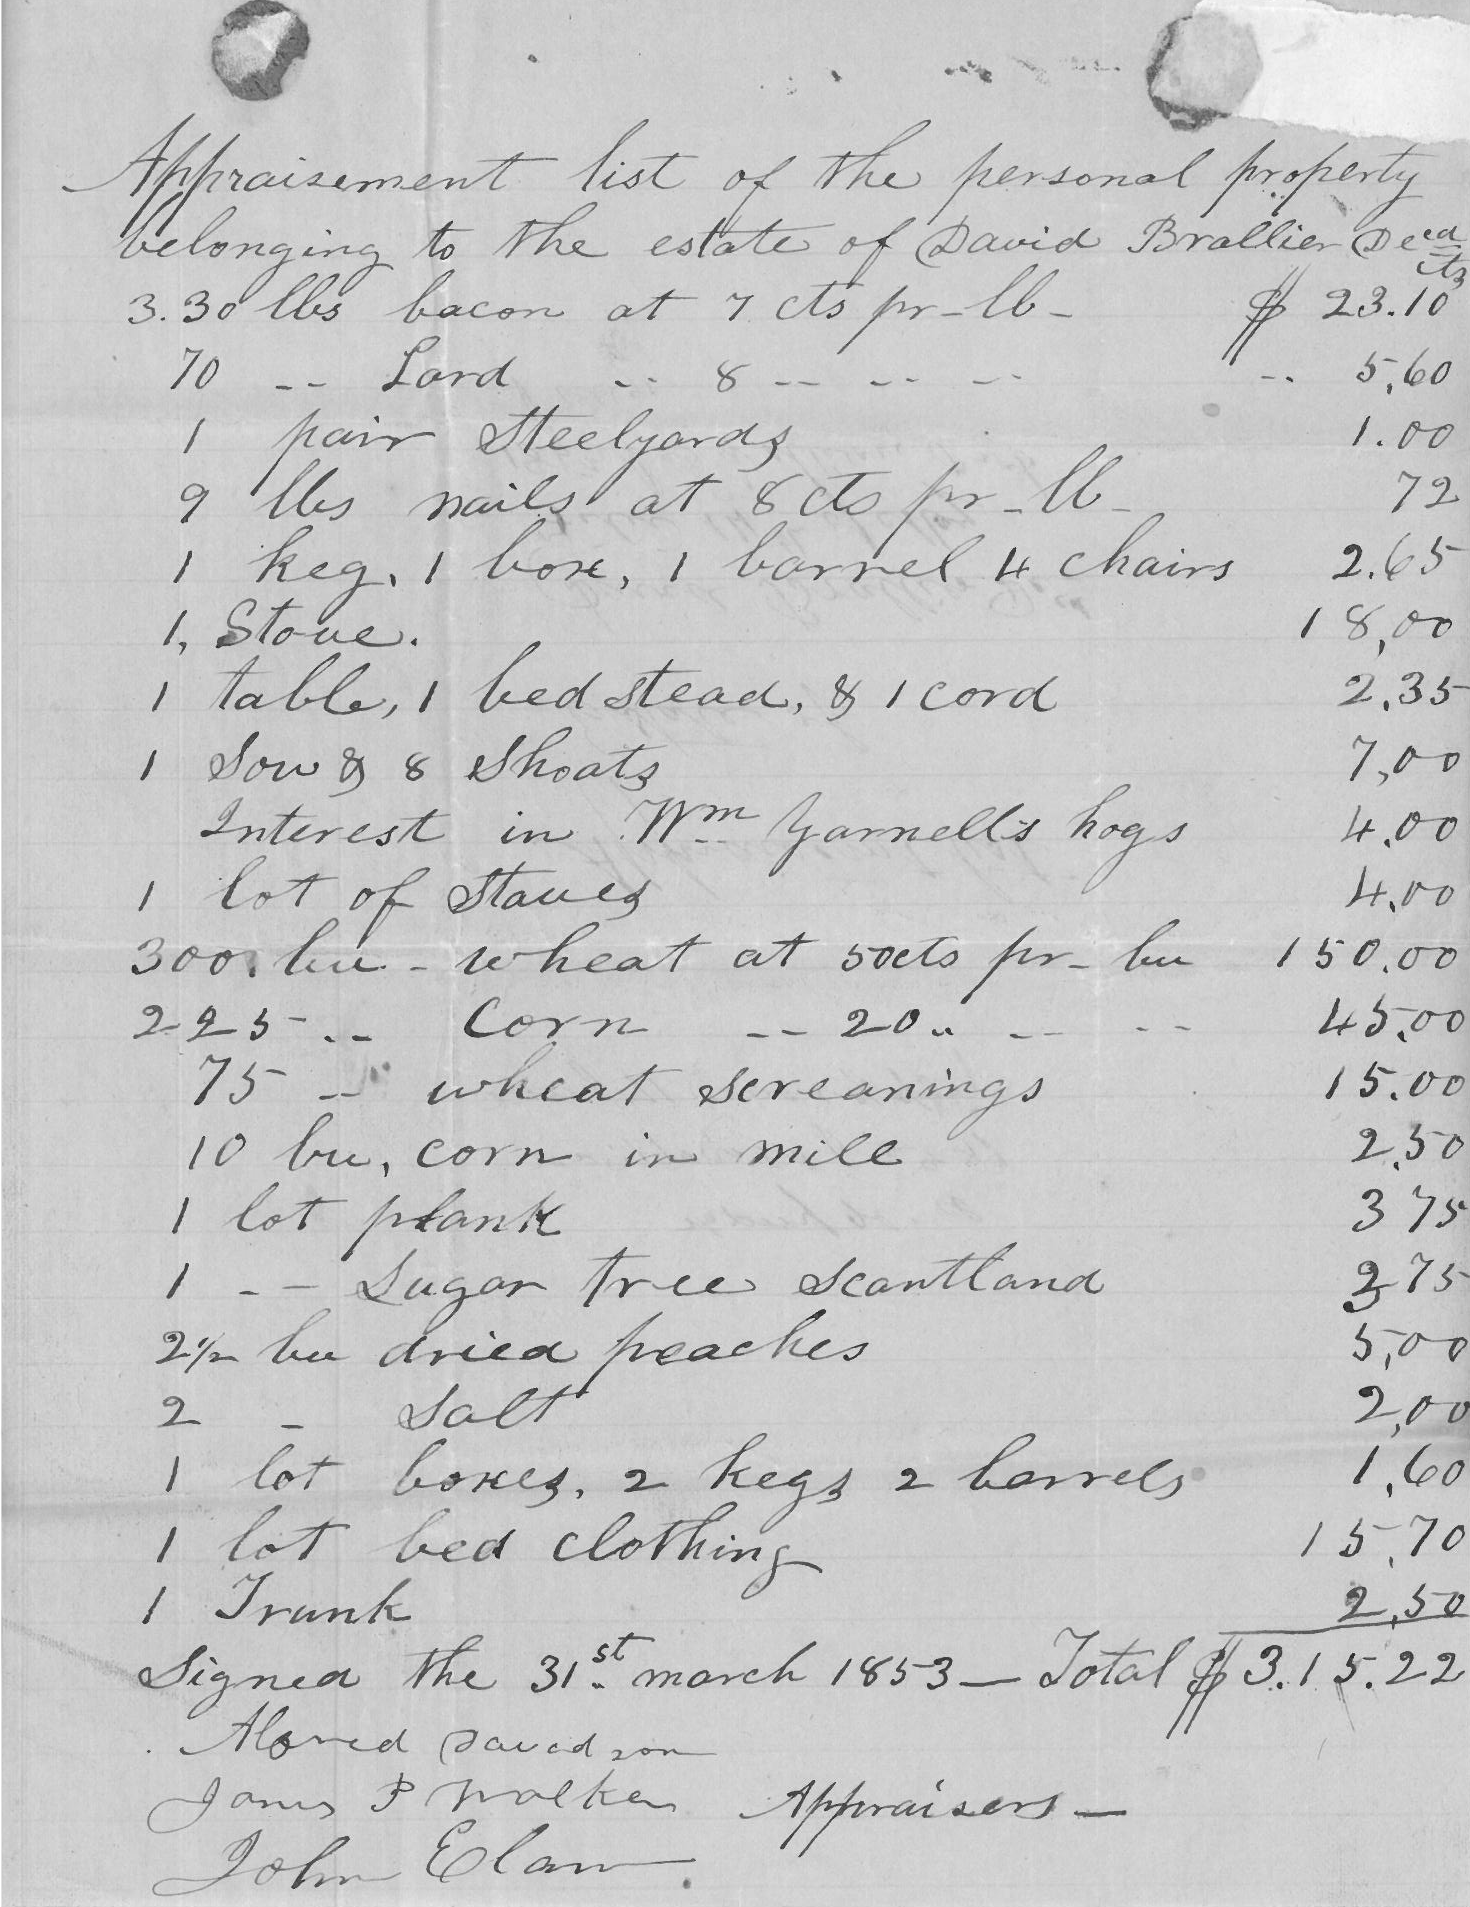 Appraisement list of the personal property
belonging to the estate of David Brallier Decd
cts
3.30 lbs bacon at 7 cts pr - lb - $ 23.10
70 -- Lard -- 8 -- -- -- -- 5,60
1 pair Steelyards 1.00
9 lbs nails at 8 cts pr - lb - 72
1 keg, 1 box, 1 barrel 4 chairs 2.65
1, Stove. 18,00
1 table, 1 bed stead, & 1 cord 2,35
1 Sow & 8 Shoats 7,00
Interest in Wm Yarnell's hogs 4.00
1 lot of Staves 4,00
300. bu - wheat at 50cts pr - bu 150.00
225 -- Corn -- 20 -- -- -- 45,00
75 -- wheat screanings 15.00
10 bu, corn in mill 2,50
1 lot plank 3 75
1 -- Sugar tree scantland 3 75
2 1/2 bu dried peaches 5,00
2 - Salt 2,00
1 lot boxes, 2 kegs 2 barrels 1,60
1 lot bed clothing 15,70
1 Trunk 2,50
Signed the 31st march 1853 — Total $ 3.15.22
Davidson
James P Walker Appraisers —
John Elam